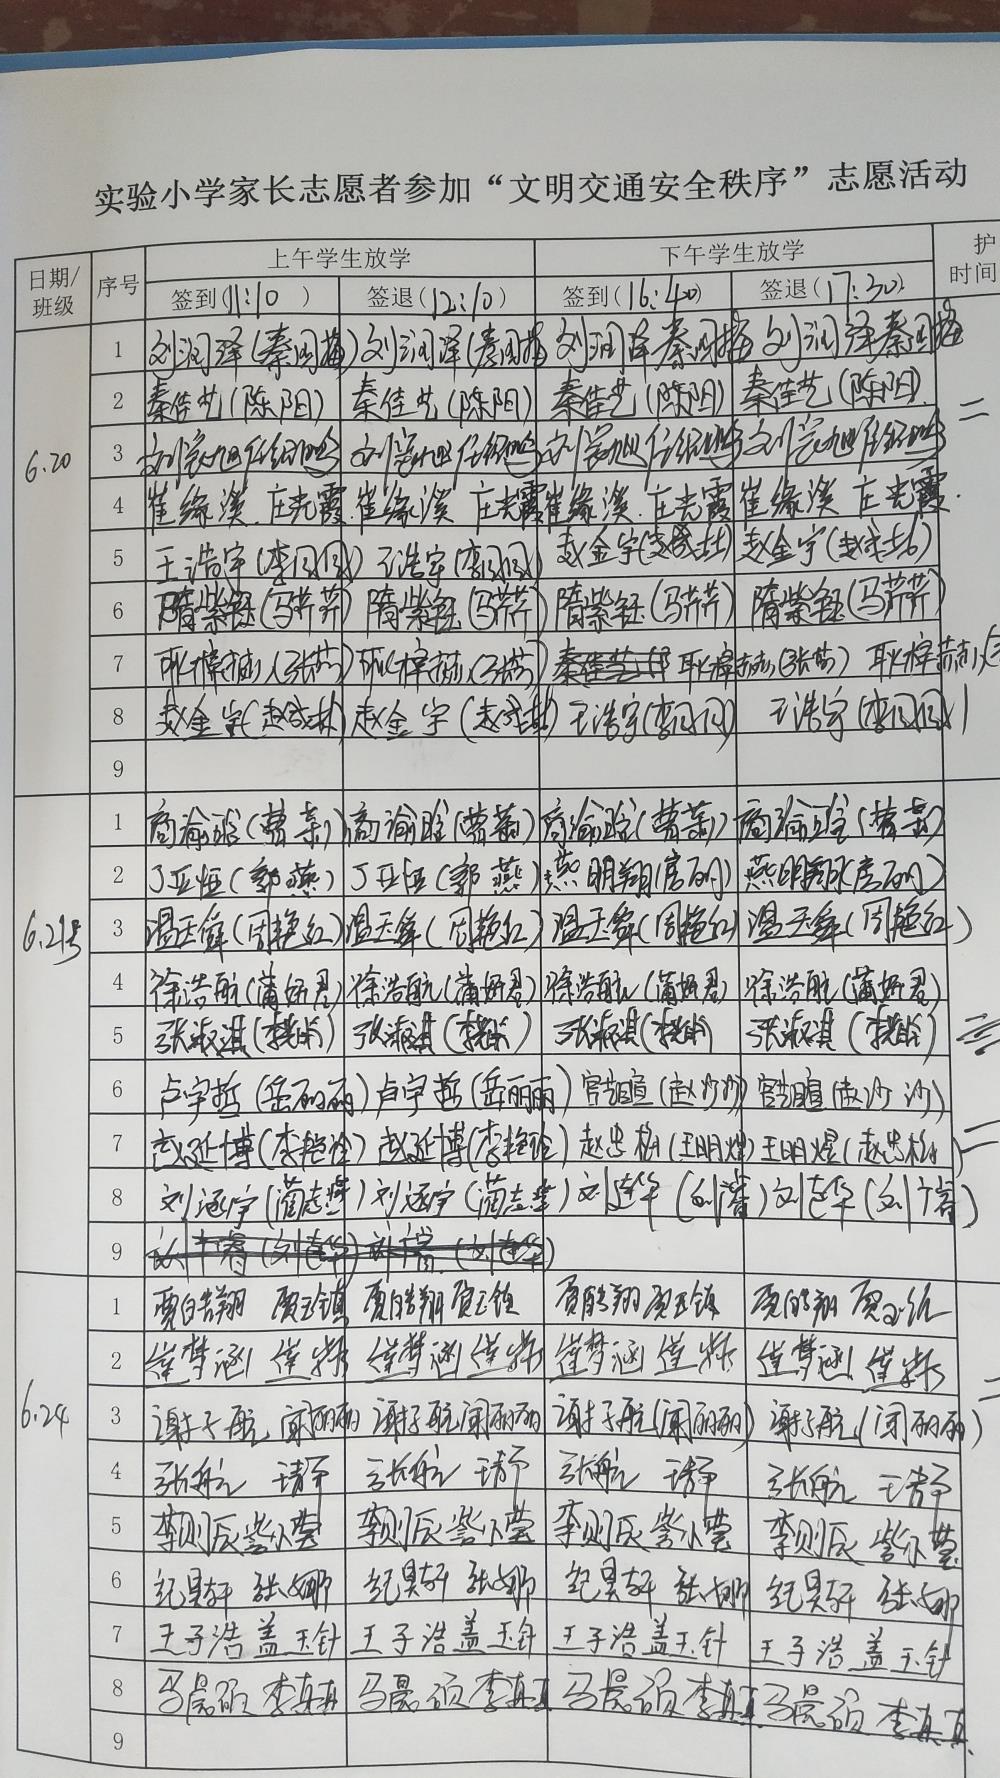 实验小学家长志愿者参加“文明交通安全秩序”志愿活动
日期/班级 序号 上午学生放学 下午学生放学 护
签到(11:10) 签退(12:10) 签到(16:40) 签退(17:30) 时间
6.20
1 刘润泽(秦同梅) 刘润泽(秦同梅 刘润泽秦同梅 刘润泽秦同梅
2 秦佳艺(陈阳) 秦佳艺(陈阳) 秦佳艺(陈阳) 秦佳艺(陈阳)
3 刘 旭任 刘 旭任 刘 旭任 刘 旭任
4 崔缘溪.庄光霞 崔缘溪 庄光霞 崔缘溪.庄光霞 崔缘溪 庄光霞.
5 王浩宇(李月月) 王浩宇(李月月) 赵金宇(赵成林) 赵金宇(赵成林)
6 隋紫钰(马芹芹) 隋紫钰(马芹芹) 隋紫钰(马芹芹) 隋紫钰(马芹芹)
7 耿梓赫(张芳) 耿梓赫(张芳) 秦佳艺 耿梓赫(张芳) 耿梓赫(
8 赵金宇(赵成林) 赵金宇(赵成林) 王浩宇(李月月) 王浩宇(李月月)
9
6.21号
1 商渝晗(曹菊) 商渝晗(曹菊) 商渝晗(曹菊) 商渝晗(曹菊)
2 丁亚恒(郭燕) 丁亚恒(郭燕) 燕明翔(房丽) 燕明翔(房丽)
3 温玉舜(周艳红) 温玉舜(周艳红) 温玉舜(周艳红) 温玉舜(周艳红)
4 徐浩航(蒲妍君) 徐浩航(蒲妍君) 徐浩航(蒲妍君) 徐浩航(蒲妍君)
5 张淑淇(李 ) 张淑淇(李 ) 张淑淇(李 ) 张淑淇(李 )
6 卢宇哲(岳丽丽) 卢宇哲(岳丽丽) 官皓暄(赵沙沙) 官皓暄(赵沙沙)
7 赵延博(李艳玲) 赵延博(李艳玲) 赵忠彬(王明煜) 王明煜(赵忠彬)
8 刘涵宇(蔺志燕) 刘涵宇(蔺志燕) 刘建华(刘睿) 刘建华(刘睿)
9 刘睿(刘建华) 刘睿(刘建华)
6.24
1 贾皓翔 贾玉镇 贾皓翔 贾玉镇 贾皓翔 贾玉镇 贾皓翔 贾玉镇
2 崔梦涵 崔 崔梦涵 崔 崔梦涵 崔 崔梦涵 崔
3 谢子航 闫丽丽 谢子航 闫丽丽 谢子航(闫丽丽) 谢子航(闫丽丽)
4 张航 王静 张航 王静 张航 王静 张航 王静
5 李则辰 訾小莹 李则辰 訾小莹 李则辰 訾小莹 李则辰 訾小莹
6 纪昊轩 张娜 纪昊轩 张娜 纪昊轩 张娜 纪昊轩 张娜
7 王子浩 盖玉针 王子浩 盖玉针 王子浩 盖玉针 王子浩 盖玉针
8 马晨硕 李真真 马晨硕 李真真 马晨硕 李真真 马晨硕 李真真
9